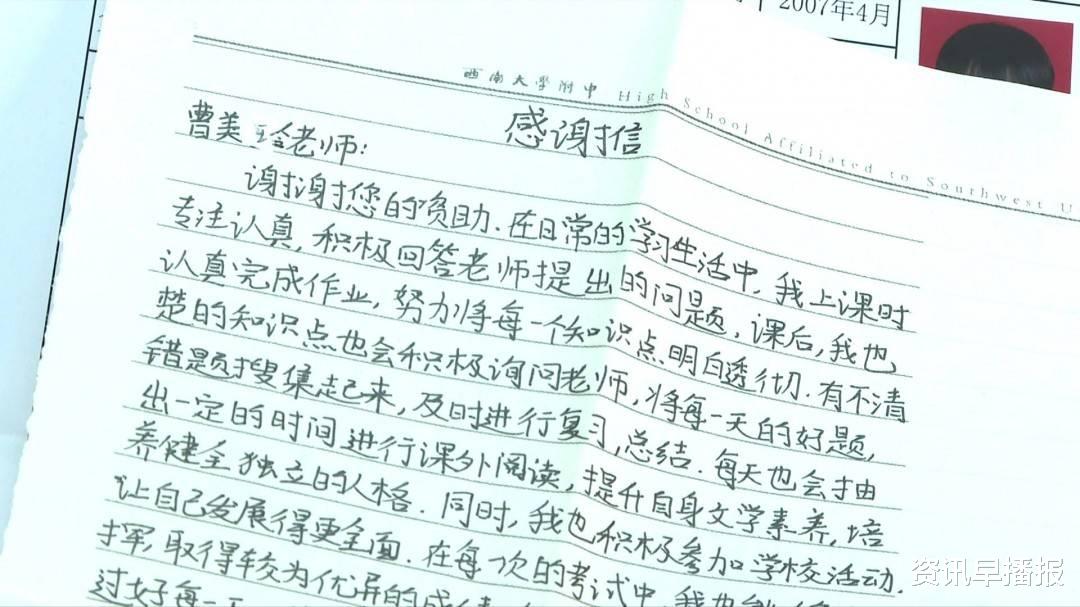 2007年4月
西南大学附中 High School Affiliated to Southwest U
感谢信
曹美玲老师:
谢谢您的资助.在日常的学习生活中,我上课时
专注认真,积极回答老师提出的问题,课后,我也
认真完成作业,努力将每一个知识点明白透彻.有不清
楚的知识点也会积极询问老师,将每一天的好题,
错题搜集起来,及时进行复习,总结.每天也会抽
出一定的时间进行课外阅读,提升自身文学素养,培
养健全独立的人格.同时,我也积极参加学校活动.
让自己发展得更全面.在每一次的考试中,我也
挥,取得较为优异的成
过好每一天
资讯早播报